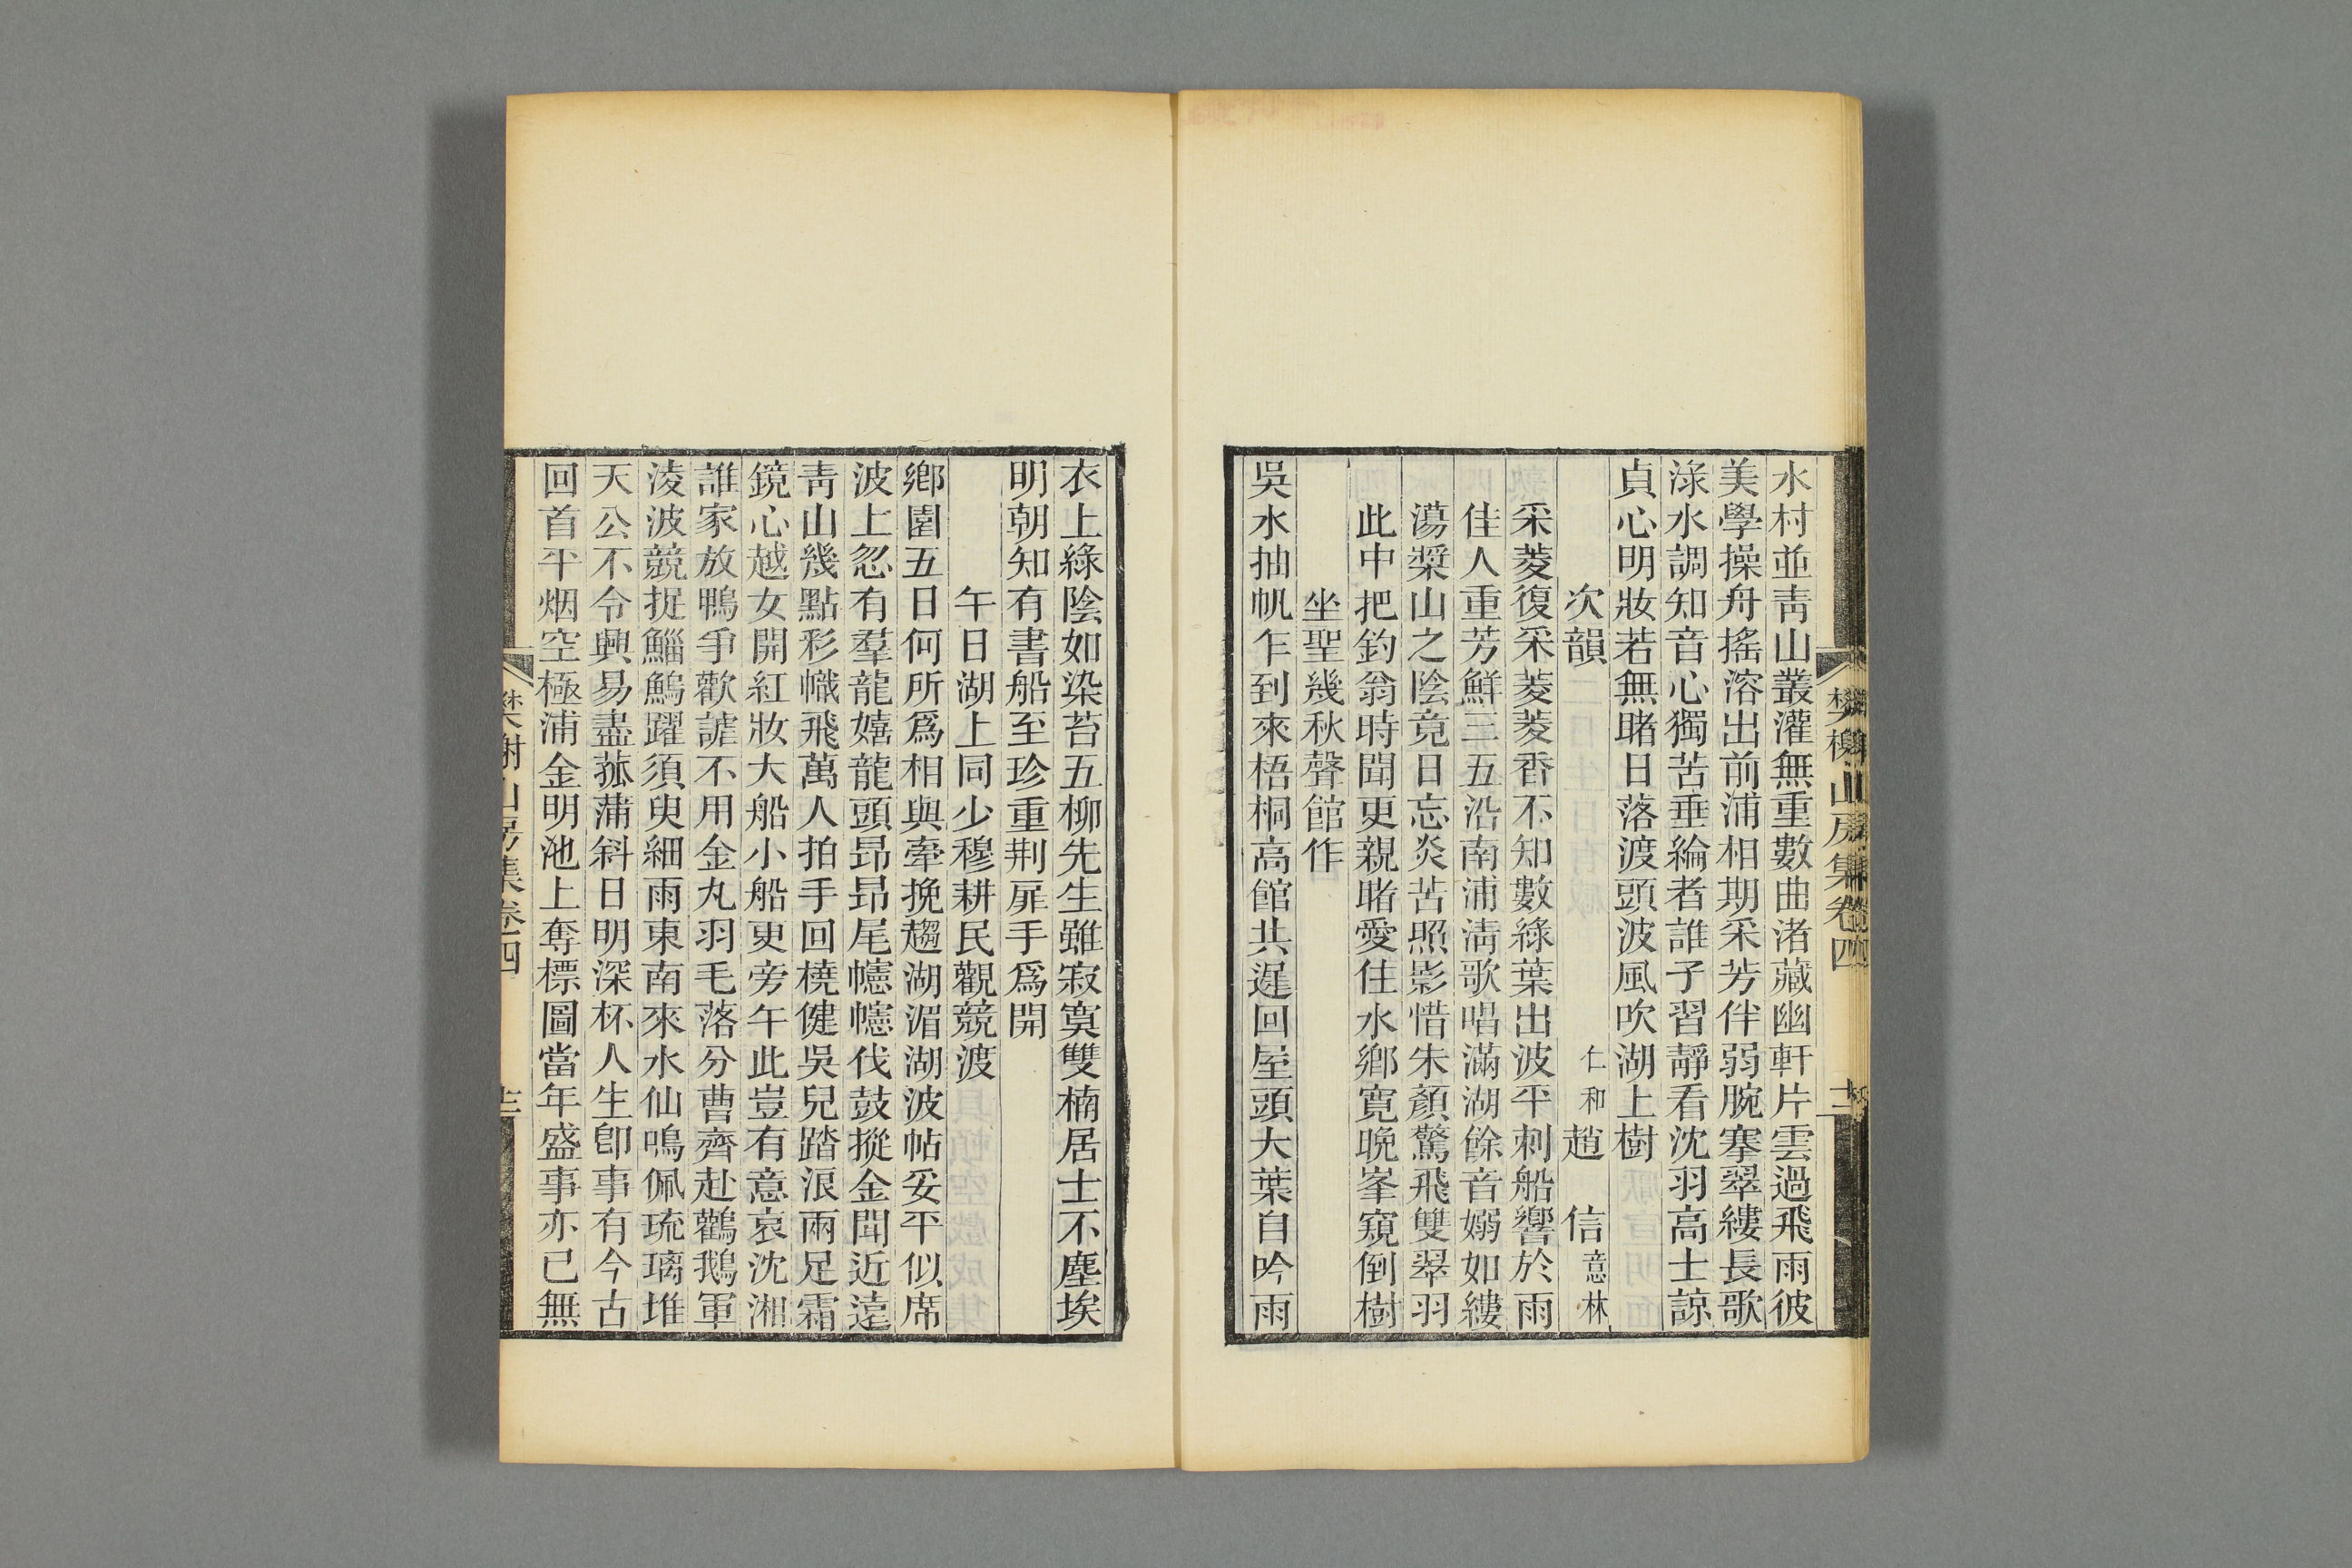 水村並靑山叢灌無重數曲渚藏幽軒片雲過飛雨彼
美學操舟搖溶出前浦相期采芳伴弱腕搴翠縷長歌
淥水調知音心獨苦垂綸者誰子習靜看沈羽高士諒
貞心明妝若無睹日落渡頭波風吹湖上樹
次韻 仁和趙 信意林
采菱復采菱菱香不知數綠葉出波平刺船響於雨
佳人重芳鮮三五沿南浦淸歌唱滿湖餘音嫋如縷
蕩槳山之陰竟日忘炎苦照影惜朱顏驚飛雙翠羽
此中把釣翁時聞更親睹愛住水鄉寬晚峯窺倒樹
坐聖幾秋聲館作
吳水抽帆乍到來梧桐高館共遲回屋頭大葉自吟雨
樊榭山房集卷四 十二
衣上綠陰如染苔五柳先生雖寂寞雙楠居士不塵埃
明朝知有書船至珍重荆扉手爲開
午日湖上同少穆耕民觀競渡
鄉園五日何所爲相與牽挽趨湖湄湖波帖妥平似席
波上忽有羣龍嬉龍頭昂昂尾幰幰伐鼓摐金聞近遠
靑山幾點彩幟飛萬人拍手回橈健吳兒踏浪兩足霜
鏡心越女開紅妝大船小船更旁午此豈有意哀沈湘
誰家放鴨爭歡謔不用金丸羽毛落分曹齊赴鸛鵝軍
淩波競捉鯔鯣躍須臾細雨東南來水仙鳴佩琉璃堆
天公不令興易盡菰蒲斜日明深杯人生卽事有今古
回首平烟空極浦金明池上奪標圖當年盛事亦已無
樊榭山房集卷四